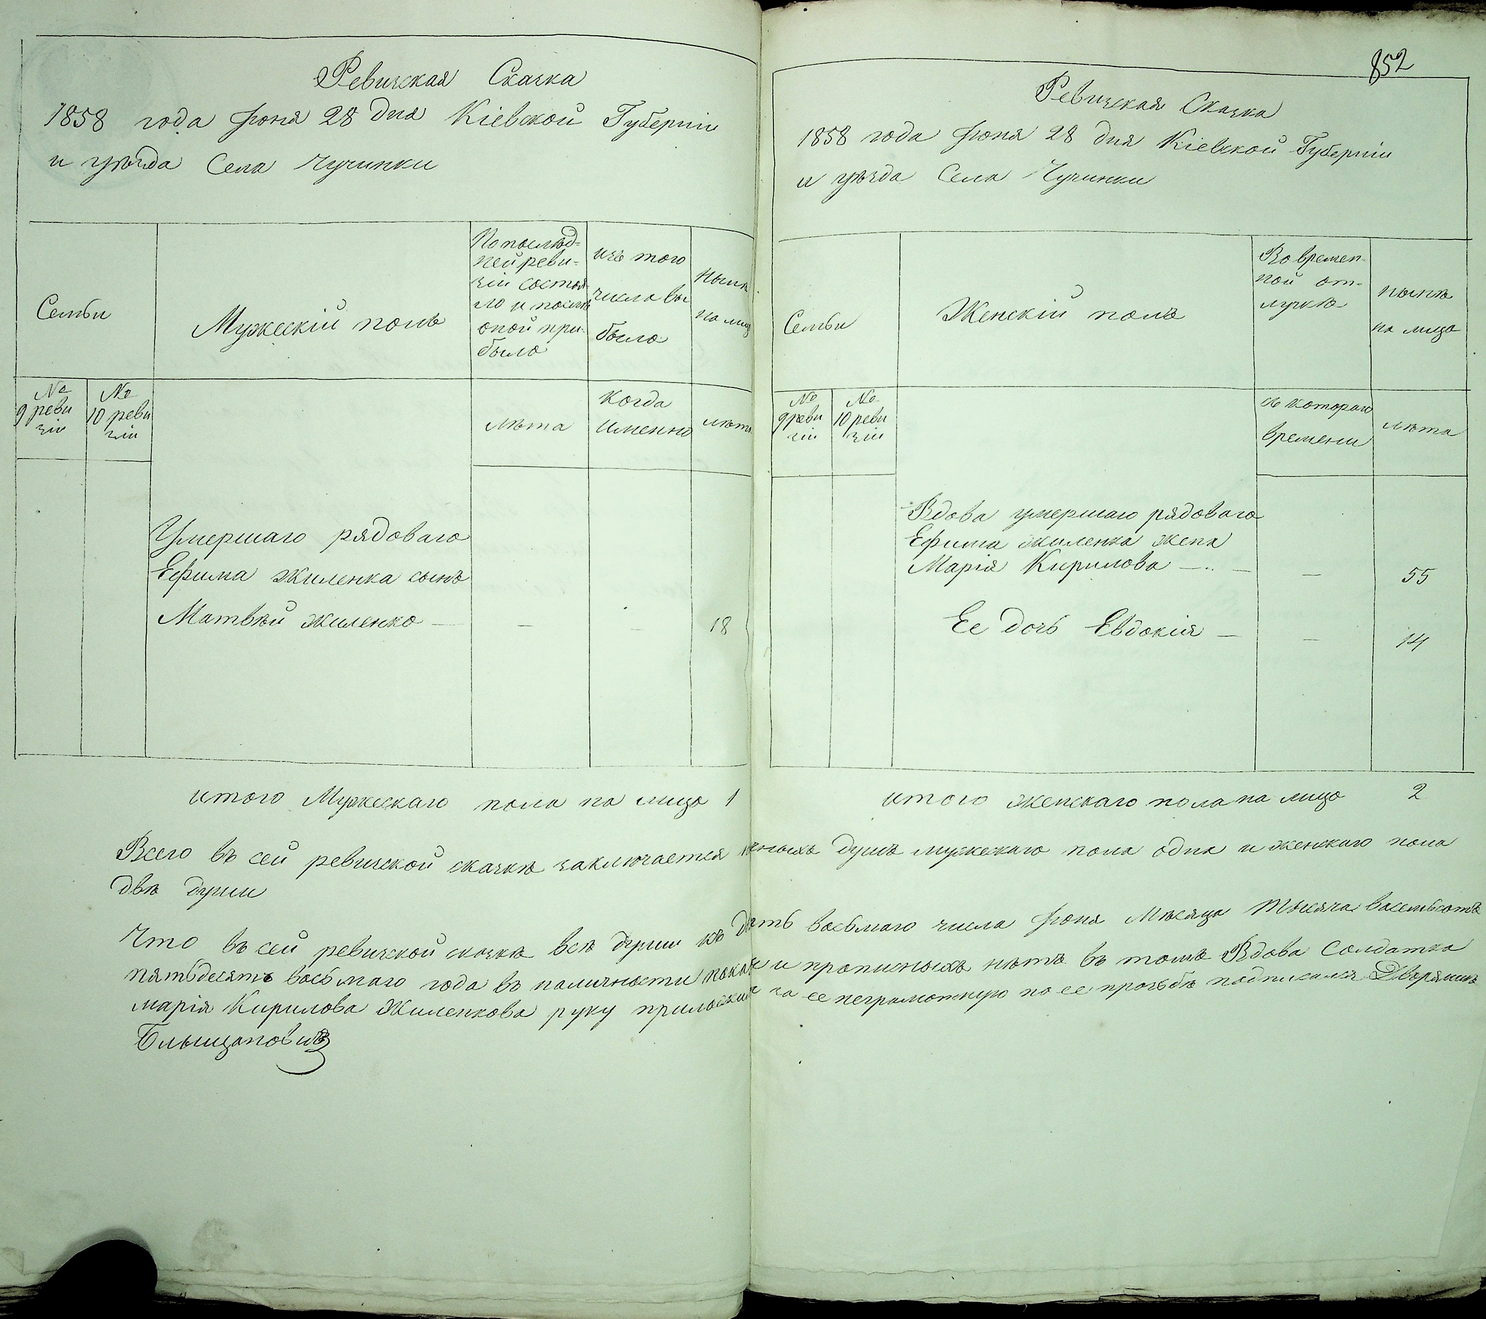 Ревизская Сказка
1858 года Июня 28 дня Кіевской Губерніи
и уѣзда Села Чучинки
Семьи
Мужескій полъ
По послѣд-
ней реви-
зіи состоя
ло и послѣ
оной при-
было
изъ того
числа вы
было
Нынѣ
на лицо
№
9 реви
зіи
№
10 реви
зіи
лѣта
Когда
Именно
лѣта
Умершаго рядоваго
Ефима Жиленка сынъ
Матвѣй Жиленко — — - 18
итого Мужескаго пола на лицо 1
852
Ревизская Сказка
1858 года Июня 28 дня Кіевской Губерніи
и уѣзда Села Чучинки
Семьи
Женскій полъ
Во времен-
ной от-
лучкѣ
нынѣ
на лицо
№
9 реви
зіи
№
10 реви
зіи
съ котораго
времени
лѣта
Вдова умершаго рядоваго
Ефима Жиленка жена
Марія Кирилова — — — 55
Ее дочь Евдокія — — 14
итого женскаго пола на лицо 2
Всего въ сей ревизской сказкѣ заключается душъ мужескаго пола одна и женскаго пола
двѣ души
Что въ сей ревизской сказкѣ всѣ души къ восьмаго числа Июня Мѣсяца тысяча восемьсотъ
пятьдесятъ восьмаго года въ наличности и прописныхъ нѣтъ въ томъ Вдова Солдатка
марія Кирилова Жиленкова руку за ее неграмотную по ее прозьбѣ подписался Дворянинъ